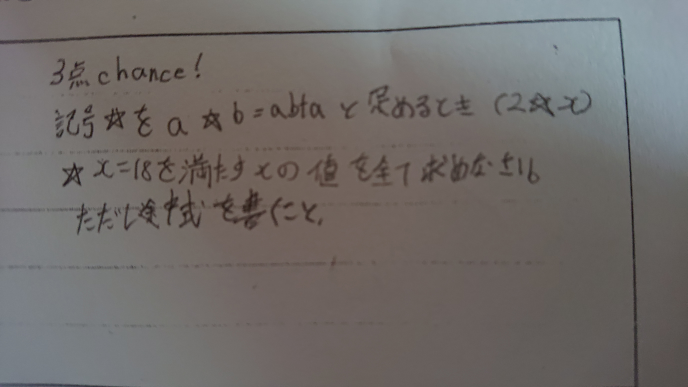 3点chance!
記号☆を a☆b=ab+a と定めるとき (2☆x)
☆x=18を満たすxの値を全て求めなさい。
ただし途中式を書くこと.